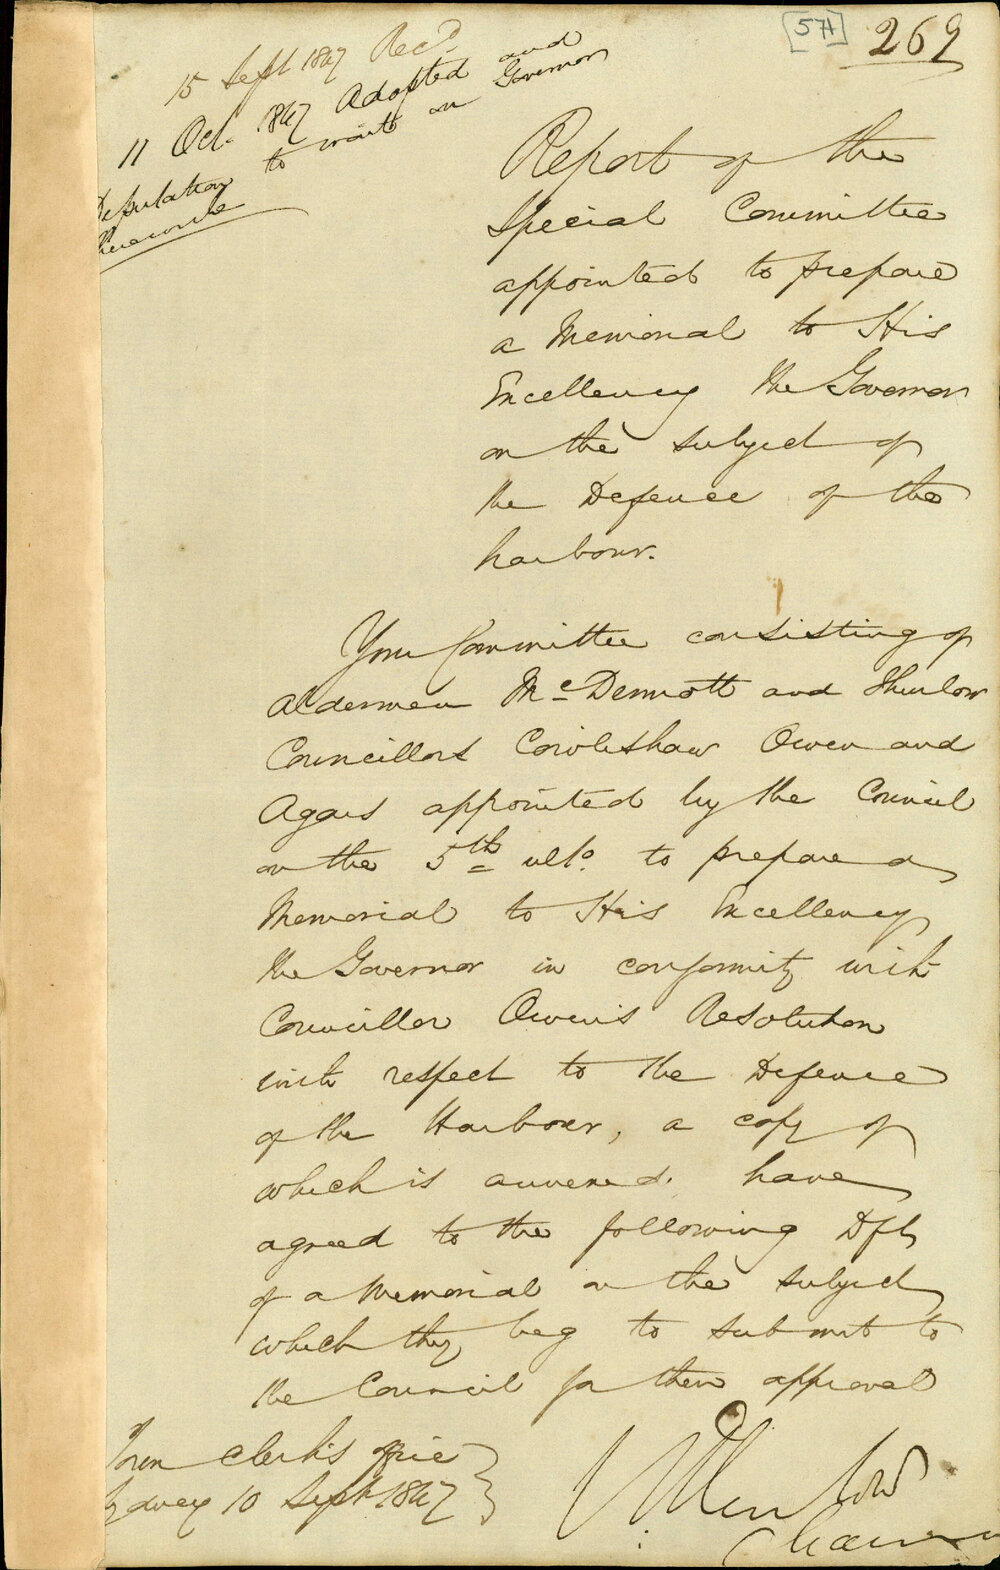 [571] 269
15 Sept 1847 Recd.
11 Oct. 1847 Adopted and
Deputation to wait on Governor
Report of the
Special Committee
appointed to prepare
a Memorial to His
Excellency the Governor
on the subject of
the Defence of the
harbour.
Your Committee consisting of
Aldermen McDermott and Thurlow
Councillors Cowlishaw Owen and
Agars appointed by the Council
on the 5th ulto. to prepare a
Memorial to His Excellency
the Governor in conformity with
Councillor Owen's Resolution
with respect to the Defence
of the Harbour, a copy of
which is annexed. have
agreed to the following Dft
of a Memorial on the subject
which they beg to submit to
the Council for their approval
Town Clerk's office
Sydney 10 Sept 1847
W Thurlow
Chairman